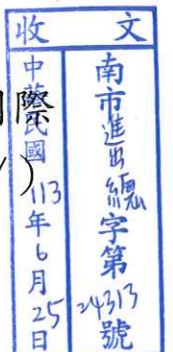 收文
南市進出總字第24313號
中華民國113年6月25日
際
)